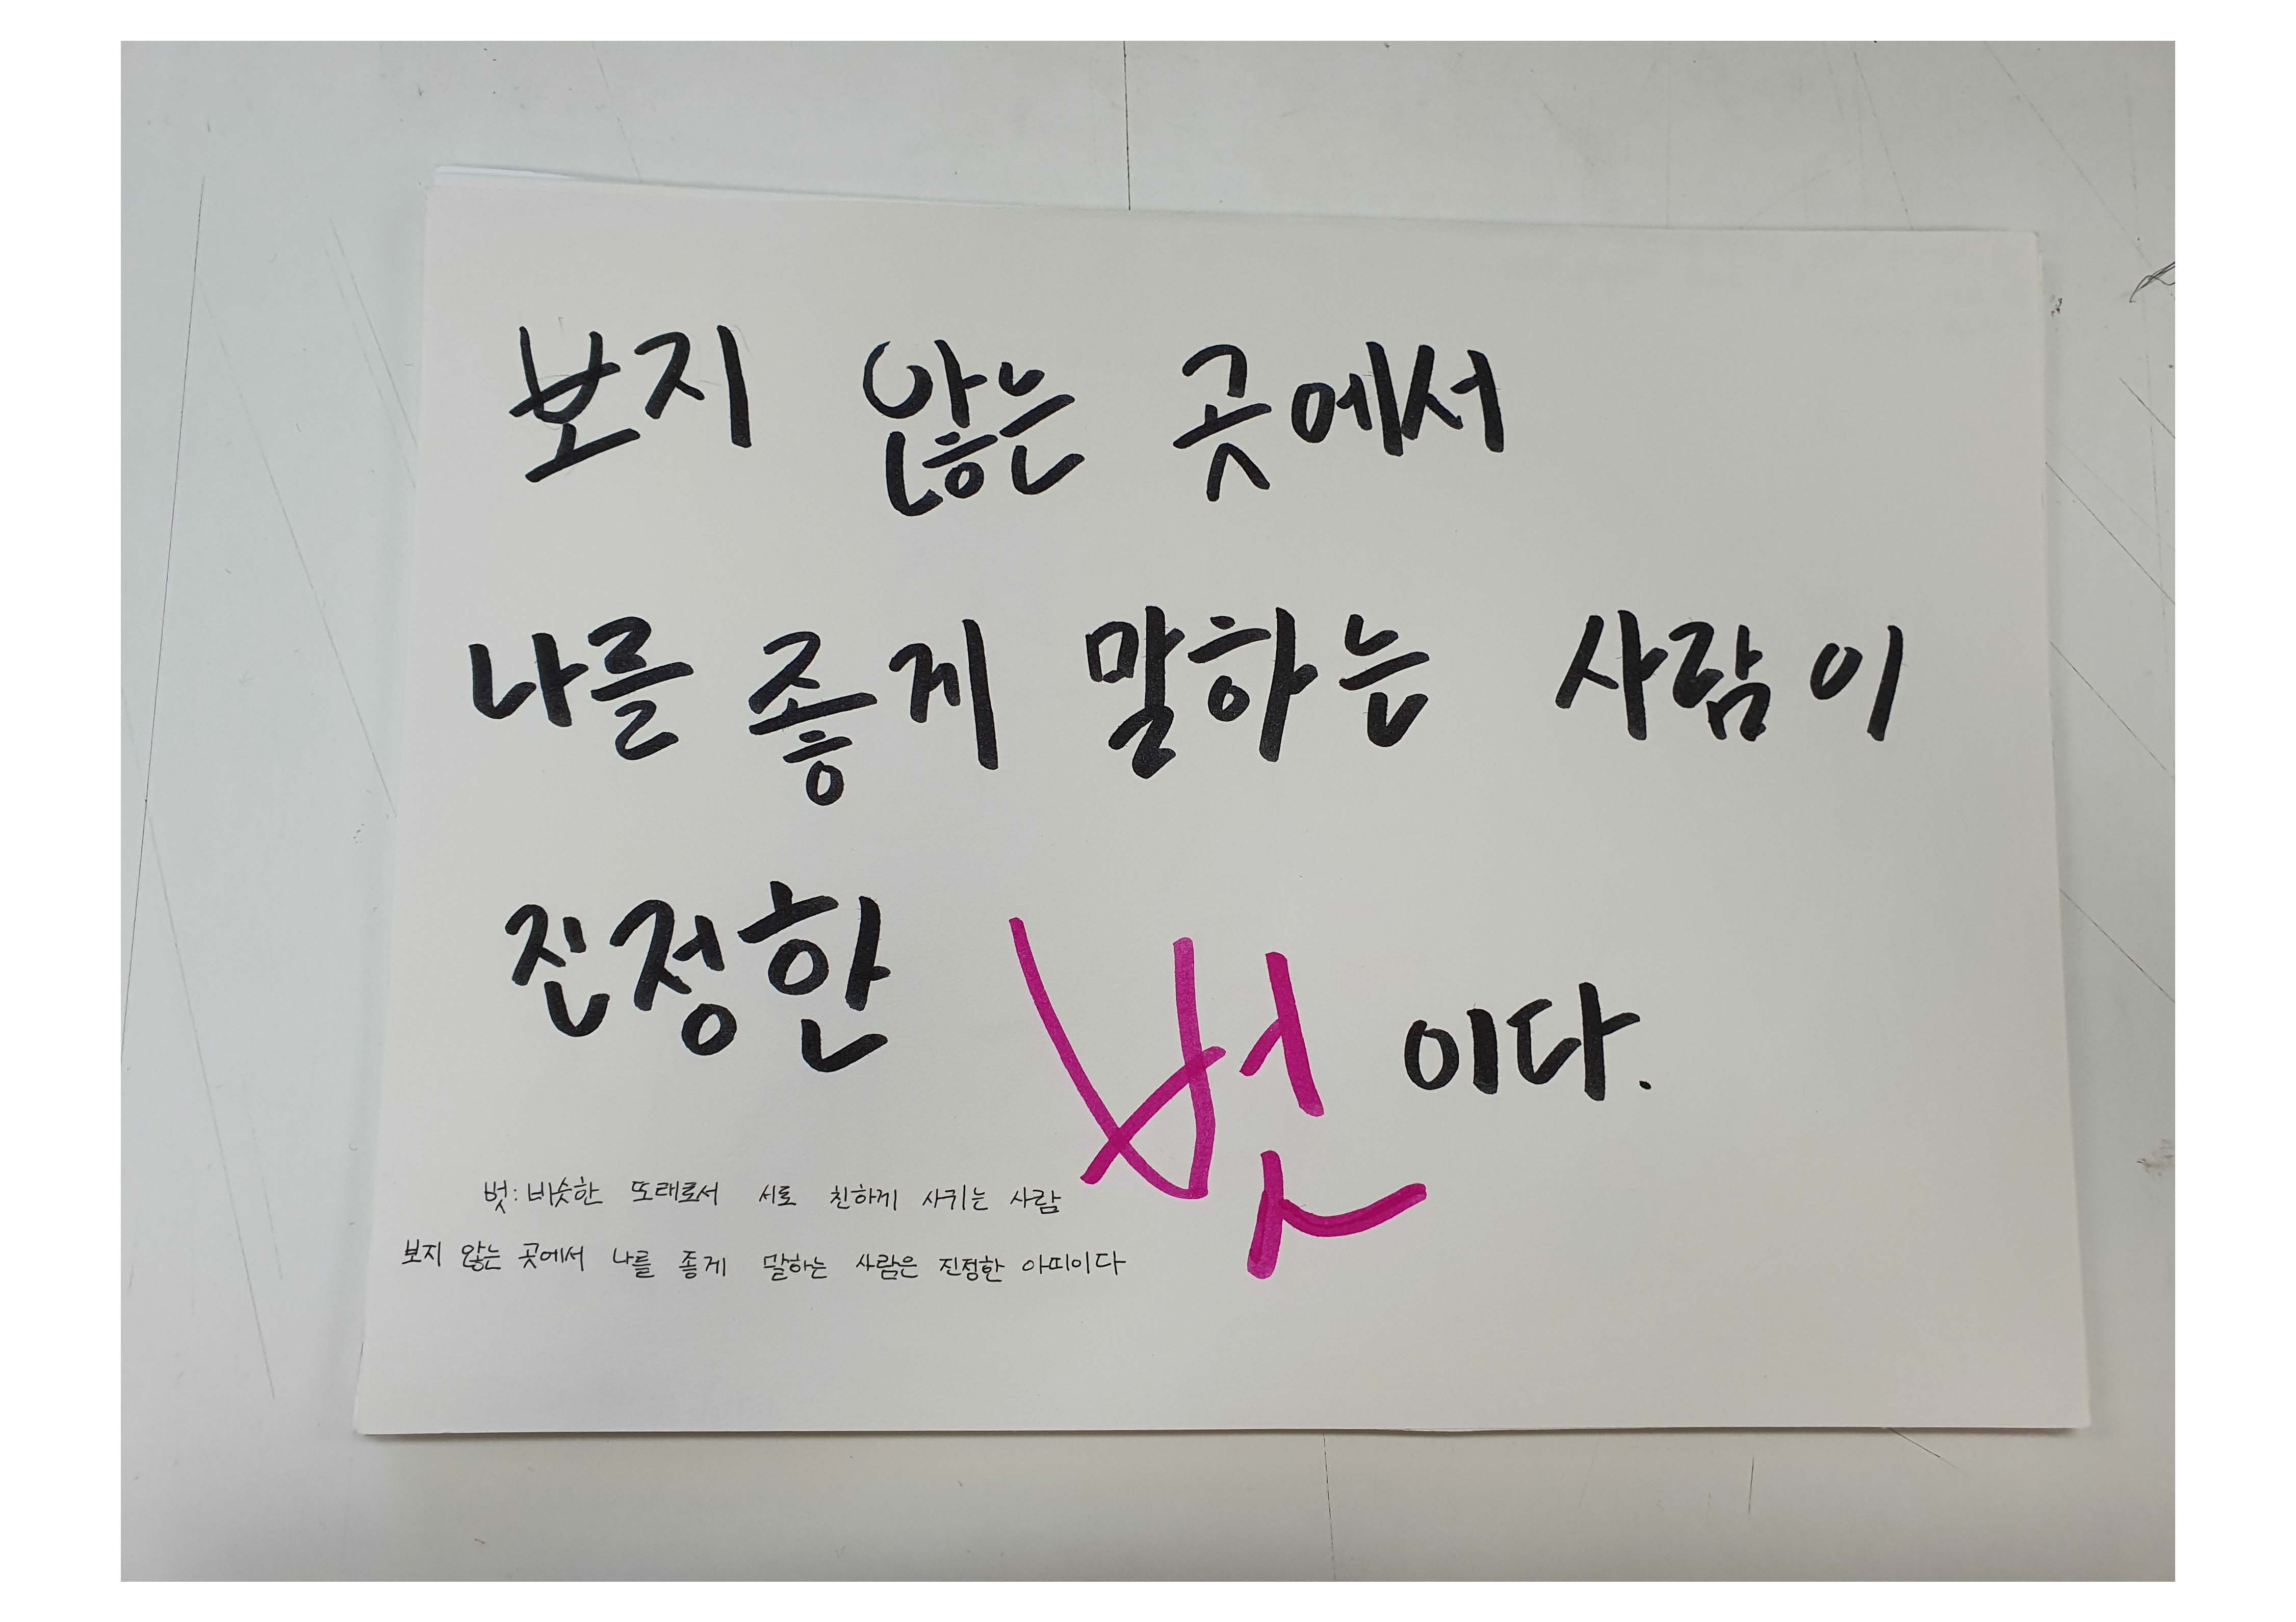 보지 않는 곳에서
나를 좋게 말하는 사람이
진정한 벗 이다.
벗: 비슷한 또래로서 서로 친하게 사귀는 사람
보지 않는 곳에서 나를 좋게 말하는 사람은 진정한 아띠이다